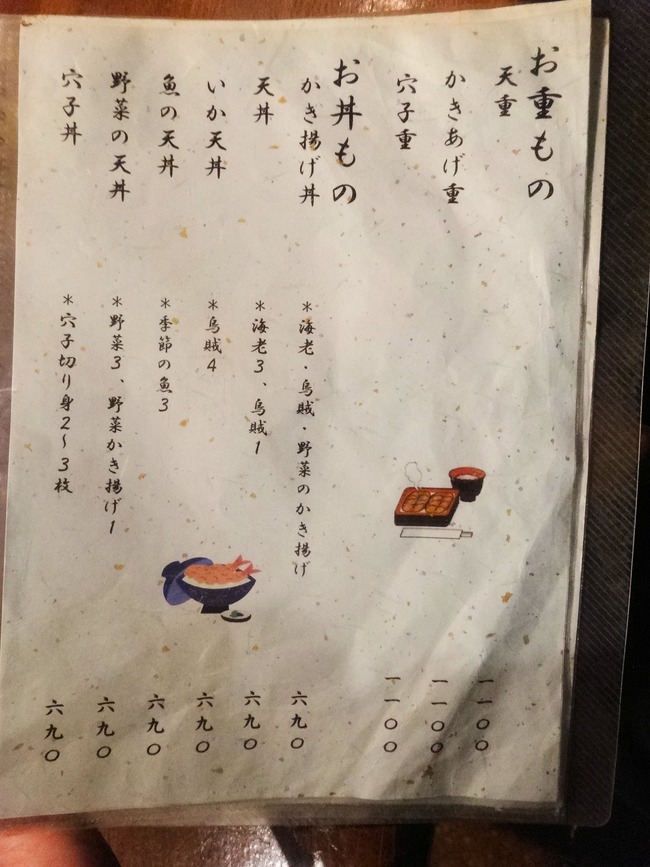 お重もの
天重 一一〇〇
かきあげ重 一一〇〇
穴子重 一一〇〇
お丼もの
かき揚げ丼 *海老・烏賊・野菜のかき揚げ 六九〇
天丼 *海老3、烏賊1 六九〇
いか天丼 *烏賊4 六九〇
魚の天丼 *季節の魚3 六九〇
野菜の天丼 *野菜3、野菜かき揚げ1 六九〇
穴子丼 *穴子切り身2〜3枚 六九〇